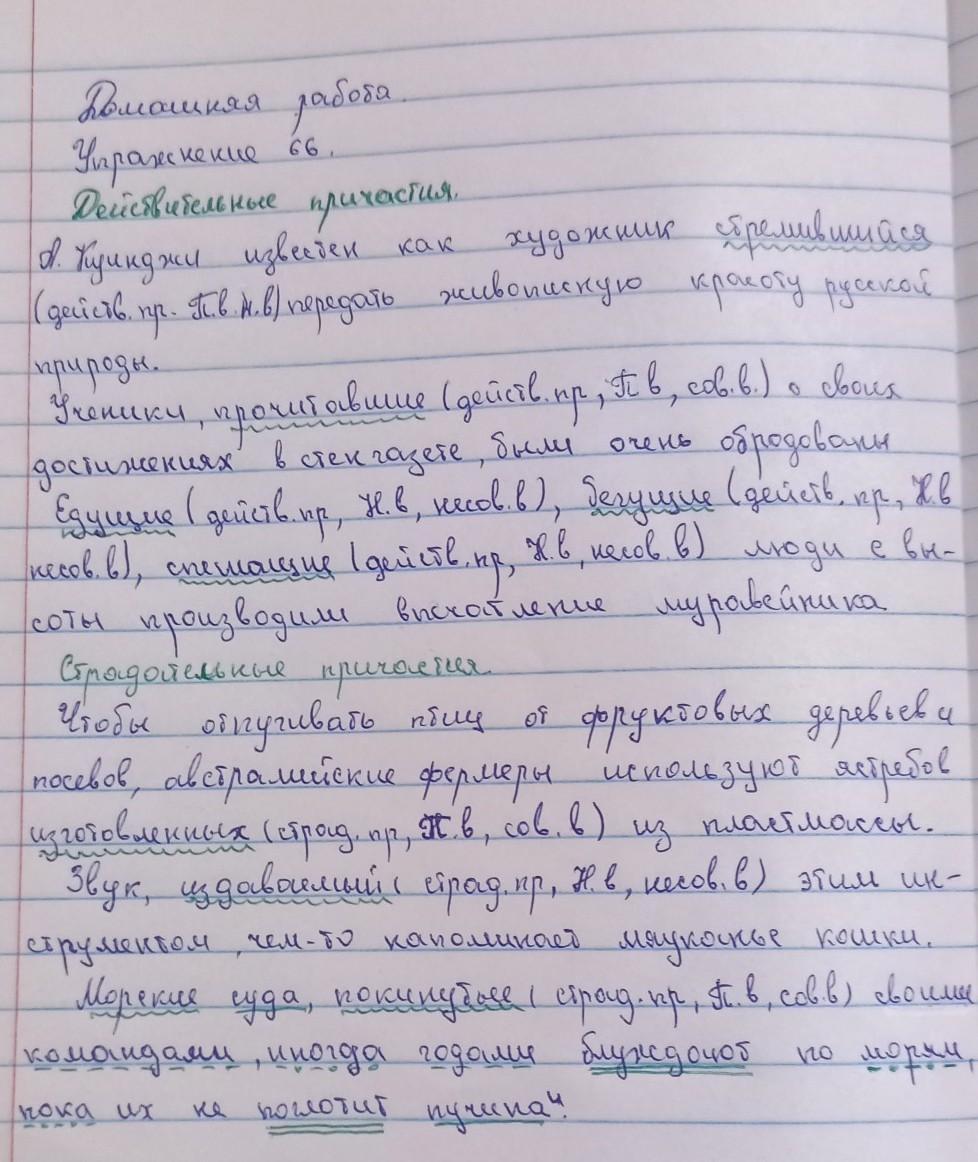 Домашняя работа.
Упражнение 66.
Действительные причастия.
А. Куинджи известен как художник стремившийся
(действ. пр. П.в. н.в) передать живописную красоту русской
природы.
Ученики, прочитавшие (действ. пр, П в, сов. в.) о своих
достижениях в стенгазете, были очень обрадованы
Едущие (действ. пр, Н.в, несов. в), бегущие (действ. пр, Н.в
несов. в), спешащие (действ. пр, Н.в, несов. в) люди с вы-
соты производили впечатление муравейника
Страдательные причастия.
Чтобы отпугивать птиц от фруктовых деревьев и
посевов, австралийские фермеры используют ястребов
изготовленных (страд. пр, П.в, сов. в) из пластмассы.
Звук, издаваемый (страд. пр, Н.в, несов. в) этим ин-
струментом, чем-то напоминает мяуканье кошки.
Морские суда, покинутые (страд. пр, П.в, сов.в) своими
командами, иногда годами блуждают по морям,
пока их не поглотит пучина⁴.